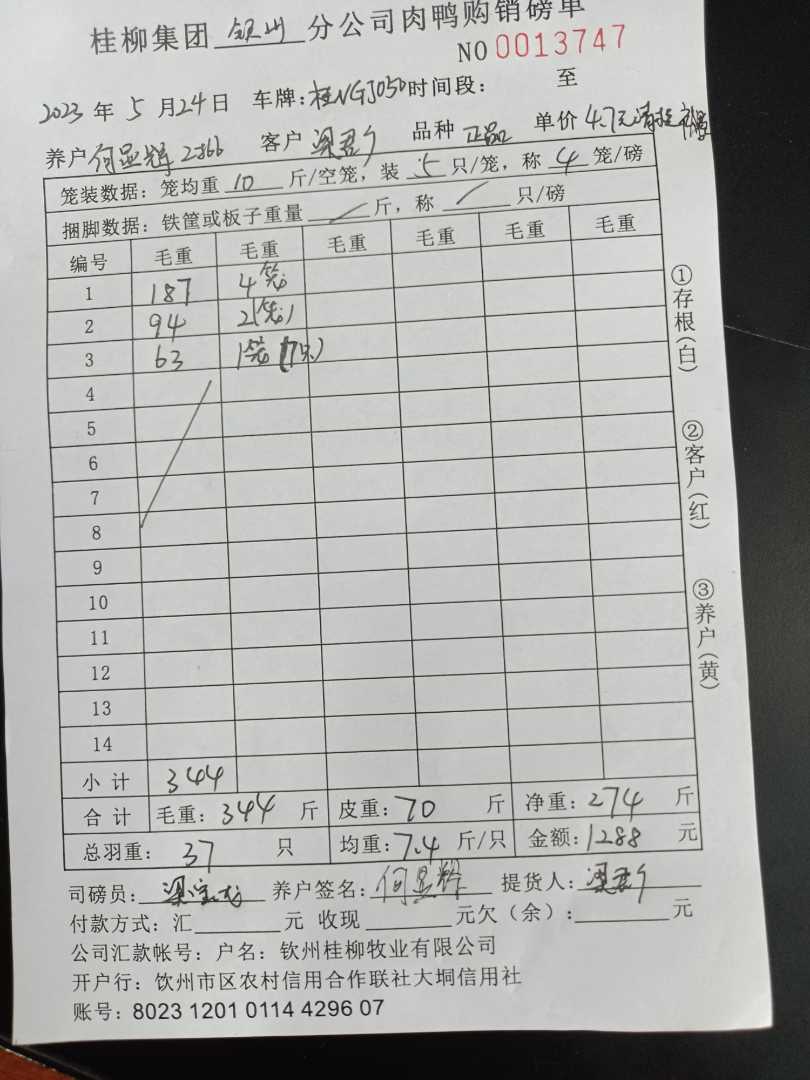 桂柳集团 钦州 分公司肉鸭购销磅单
NO 0013747
2023 年 5 月 24 日 车牌: 桂NGJ050 时间段: 至
养户 何显辉 2866 客户 梁君 品种 正品 单价 4.7元
笼装数据: 笼均重 10 斤/空笼, 装 5 只/笼, 称 4 笼/磅
捆脚数据: 铁筐或板子重量 / 斤, 称 / 只/磅
编号 毛重 毛重 毛重 毛重 毛重 毛重
1 187 4笼
2 94 2(笼)
3 63 1笼(7只)
4
5
6
7
8
9
10
11
12
13
14
小计 344
合计 毛重: 344 斤 皮重: 70 斤 净重: 274 斤
总羽重: 37 只 均重: 7.4 斤/只 金额: 1288 元
司磅员: 梁宝 养户签名: 何显辉 提货人: 梁君
付款方式: 汇 元 收现 元欠(余): 元
公司汇款帐号: 户名: 钦州桂柳牧业有限公司
开户行: 饮州市区农村信用合作联社大垌信用社
账号: 8023 1201 0114 4296 07
①存根(白)
②客户(红)
③养户(黄)